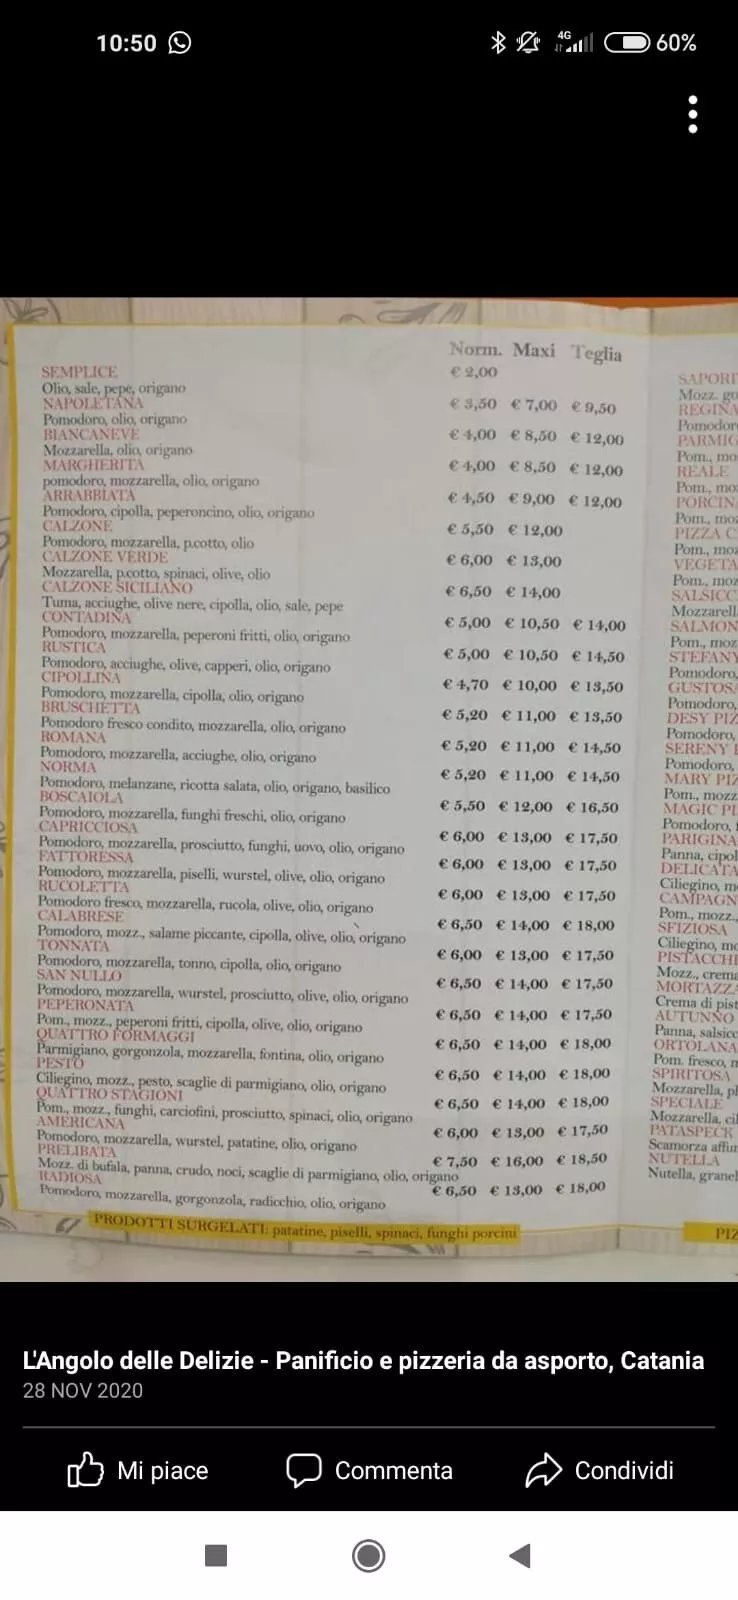 10:50
4G
60%
Norm. Maxi Teglia
SEMPLICE € 2,00
Olio, sale, pepe, origano
NAPOLETANA € 3,50 € 7,00 € 9,50
Pomodoro, olio, origano
BIANCANEVE € 4,00 € 8,50 € 12,00
Mozzarella, olio, origano
MARGHERITA € 4,00 € 8,50 € 12,00
pomodoro, mozzarella, olio, origano
ARRABBIATA € 4,50 € 9,00 € 12,00
Pomodoro, cipolla, peperoncino, olio, origano
CALZONE € 5,50 € 12,00
Pomodoro, mozzarella, p.cotto, olio
CALZONE VERDE € 6,00 € 13,00
Mozzarella, p.cotto, spinaci, olive, olio
CALZONE SICILIANO € 6,50 € 14,00
Tuma, acciughe, olive nere, cipolla, olio, sale, pepe
CONTADINA € 5,00 € 10,50 € 14,00
Pomodoro, mozzarella, peperoni fritti, olio, origano
RUSTICA € 5,00 € 10,50 € 14,50
Pomodoro, acciughe, olive, capperi, olio, origano
CIPOLLINA € 4,70 € 10,00 € 13,50
Pomodoro, mozzarella, cipolla, olio, origano
BRUSCHETTA € 5,20 € 11,00 € 13,50
Pomodoro fresco condito, mozzarella, olio, origano
ROMANA € 5,20 € 11,00 € 14,50
Pomodoro, mozzarella, acciughe, olio, origano
NORMA € 5,20 € 11,00 € 14,50
Pomodoro, melanzane, ricotta salata, olio, origano, basilico
BOSCAIOLA € 5,50 € 12,00 € 16,50
Pomodoro, mozzarella, funghi freschi, olio, origano
CAPRICCIOSA € 6,00 € 13,00 € 17,50
Pomodoro, mozzarella, prosciutto, funghi, uovo, olio, origano
FATTORESSA € 6,00 € 13,00 € 17,50
Pomodoro, mozzarella, piselli, wurstel, olive, olio, origano
RUCOLETTA € 6,00 € 13,00 € 17,50
Pomodoro fresco, mozzarella, rucola, olive, olio, origano
CALABRESE € 6,50 € 14,00 € 18,00
Pomodoro, mozz., salame piccante, cipolla, olive, olio, origano
TONNATA € 6,00 € 13,00 € 17,50
Pomodoro, mozzarella, tonno, cipolla, olio, origano
SAN NULLO € 6,50 € 14,00 € 17,50
Pomodoro, mozzarella, wurstel, prosciutto, olive, olio, origano
PEPERONATA € 6,50 € 14,00 € 17,50
Pom., mozz., peperoni fritti, cipolla, olive, olio, origano
QUATTRO FORMAGGI € 6,50 € 14,00 € 18,00
Parmigiano, gorgonzola, mozzarella, fontina, olio, origano
PESTO € 6,50 € 14,00 € 18,00
Ciliegino, mozz., pesto, scaglie di parmigiano, olio, origano
QUATTRO STAGIONI € 6,50 € 14,00 € 18,00
Pom., mozz., funghi, carciofini, prosciutto, spinaci, olio, origano
AMERICANA € 6,00 € 13,00 € 17,50
Pomodoro, mozzarella, wurstel, patatine, olio, origano
PRELIBATA € 7,50 € 16,00 € 18,50
Mozz. di bufala, panna, crudo, noci, scaglie di parmigiano, olio, origano
RADIOSA € 6,50 € 13,00 € 18,00
Pomodoro, mozzarella, gorgonzola, radicchio, olio, origano
PRODOTTI SURGELATI: patatine, piselli, spinaci, funghi porcini
SAPORI
Mozz. go
REGINA
Pomodor
PARMIG
Pom., mo
REALE
Pom., moz
PORCIN
Pom., moz
PIZZA C
Pom., moz
VEGETA
Pom., moz
SALSICC
Mozzarell
SALMON
Pom., moz
STEFANY
Pomodoro,
GUSTOS
Pomodoro,
DESY PIZ
Pomodoro,
SERENY
Pomodoro,
MARY PIZ
Pom., mozz
MAGIC PI
Pomodoro,
PARIGINA
Panna, cipol
DELICATA
Ciliegino, m
CAMPAGN
Pom., mozz.,
SFIZIOSA
Ciliegino, mo
PISTACCHI
Mozz., crema
MORTAZZ
Crema di pist
AUTUNNO
Panna, salsicc
ORTOLANA
Pom. fresco, m
SPIRITOSA
Mozzarella, pl
SPECIALE
Mozzarella, cil
PATASPECK
Scamorza affu
NUTELLA
Nutella, granel
PIZ
L'Angolo delle Delizie - Panificio e pizzeria da asporto, Catania
28 NOV 2020
Mi piace
Commenta
Condividi